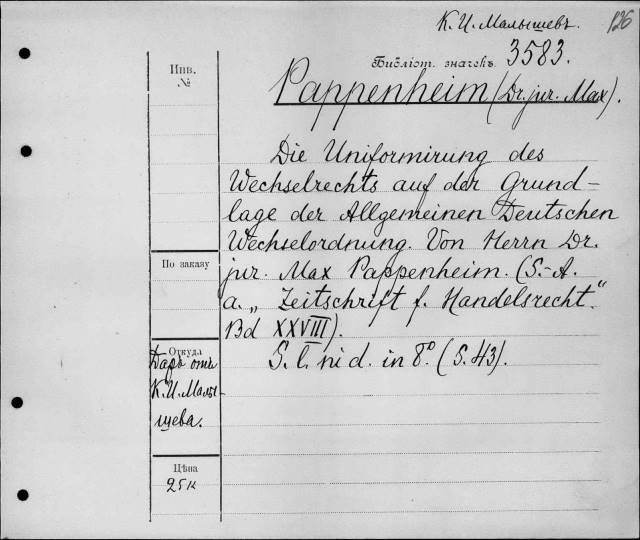 К. И. Малышевъ.
126
Библіот. значекъ 3583.
Инв.
№
Pappenheim (Dr. jur. Max).
Die Uniformirung des
Wechselrechts auf der Grund-
lage der Allgemeinen Deutschen
Wechselordnung. Von Herrn Dr.
По заказу
jur. Max Pappenheim. (S.-A.
a. „Zeitschrift f. Handelsrecht."
Bd XXVIII).
Откуда
S. l. ni d. in 8º. (S. 43).
Даръ отъ
К. И. Малы-
шева.
Цѣна
25 к